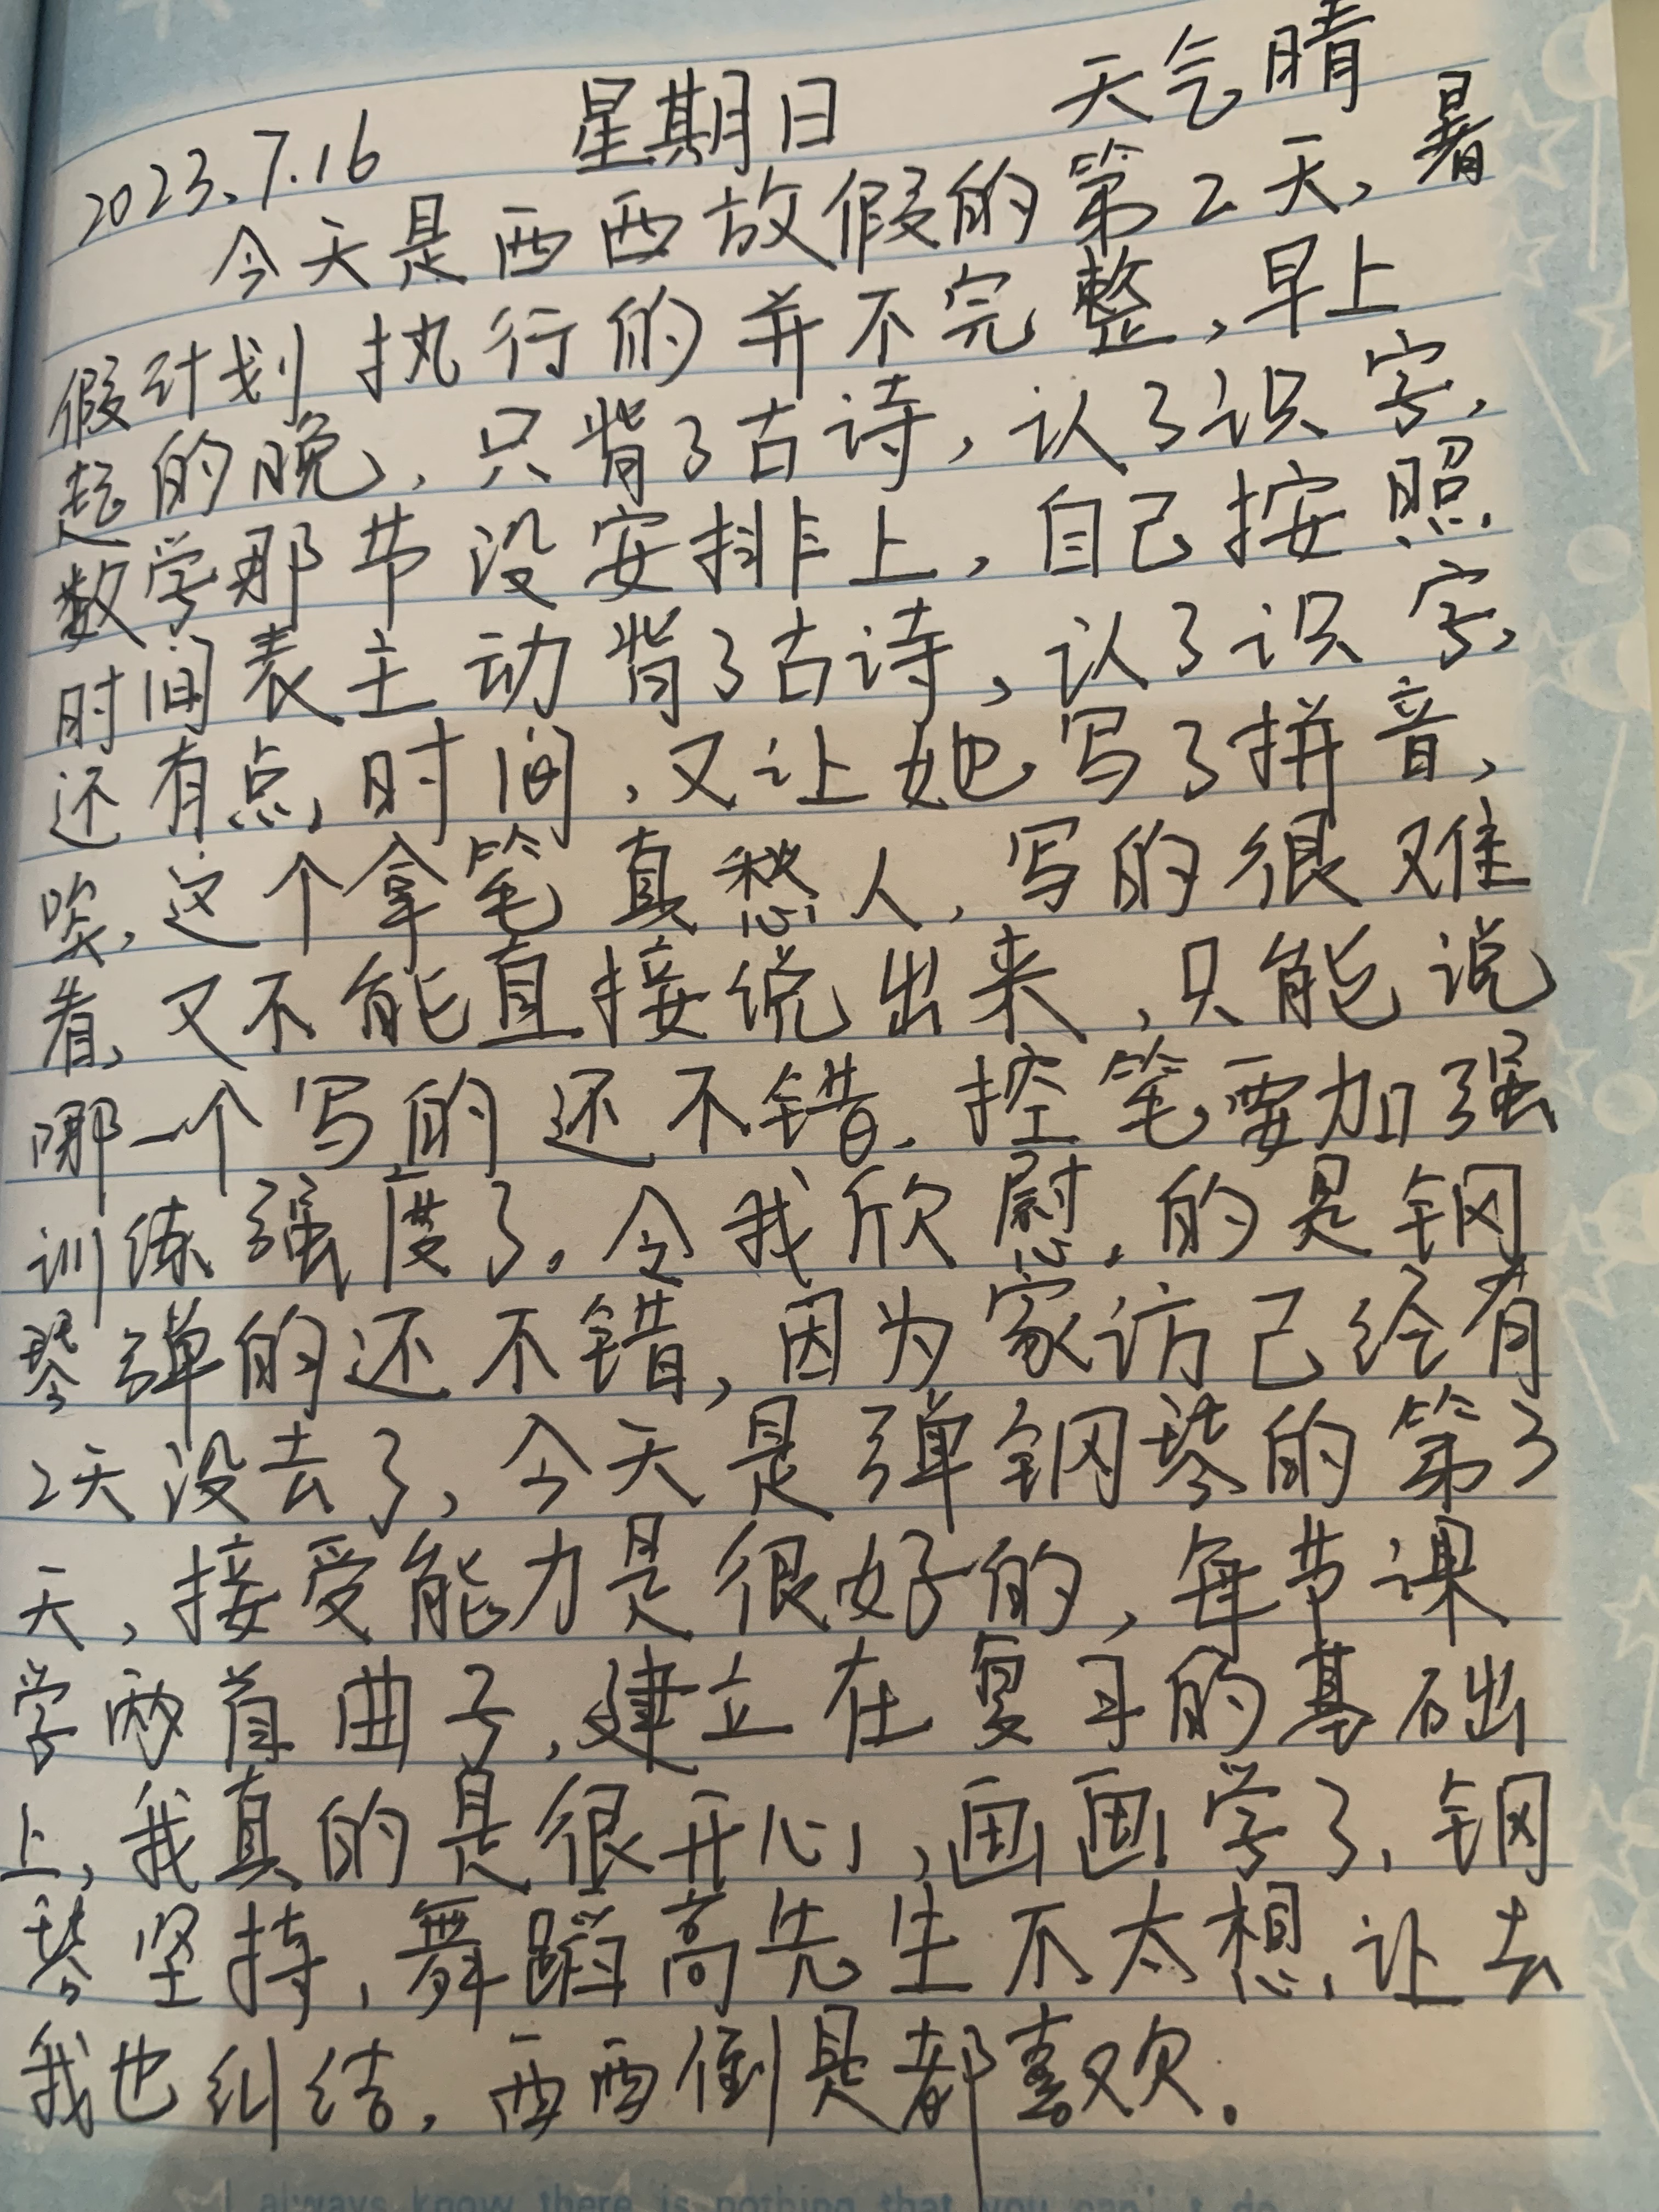 2023.7.16 星期日 天气晴
今天是西西放假的第2天，暑
假计划执行的并不完整，早上
起的晚，只背了古诗，认了识字，
数学那节没安排上，自己按照
时间表主动背了古诗，认了识字，
还有点时间，又让她写了拼音，
唉，这个拿笔真愁人，写的很难
看，又不能直接说出来，只能说
哪一个写的还不错，控笔要加强
训练强度了。令我欣慰的是钢
琴弹的还不错，因为家访已经有
2天没去了，今天是弹钢琴的第3
天，接受能力是很好的，每节课
学两首曲子，建立在复习的基础
上，我真的是很开心，画画学了，钢
琴坚持，舞蹈高先生不太想让去
我也纠结，西西倒是都喜欢。
I always know there is nothing that you can't do